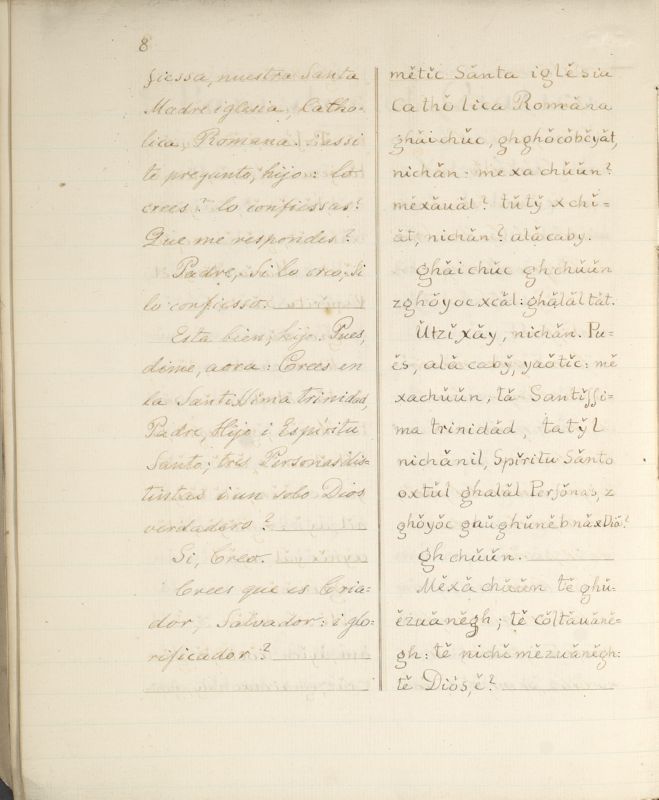 8
fiessa, nuestra Santa
Madre iglesia, Catho-
lica, Romana. i assi
te pregunto, hijo: lo
crees? lo confiessas?
Que me respondes?
Padre, Si lo creo, si
lo confiesso.
Esta bien, hijo. Pues,
dime, aora: Crees en
la Santissima trinidad,
Padre, Hijo i Espiritu
Santo; tres Personas dis-
tintas i un solo Dios
verdadero?
Si, Creo.
Crees que es Cria-
dor, Salvador: i glo-
rificador?
mĕtĭc Sănta iglĕsia
Cathŏlica Romăna
ghăichŭc, ghghŏcŏbcyăt,
nichăn: mexachŭŭn?
mĕxăuăl? tŭtў xchĭ=
ăt, nichăn? alăcaby.
ghăichŭc ghchŭŭn
zghŏyoc xcăl: ghălăltăt.
Ŭtzĭ, xăy, nichăn. Pu-
ĕs, ală cabў, yaŏtĭc: mĕ
xachŭŭn, tă Santissi-
ma trinidăd, tatўl
nichănil, Spĭritu Sănto
oxtŭl ghalăl Persŏnas, z
ghŏyŏc gaŭghŭnĕb năx Diŏ?
gh chŭŭn.
Mĕxă chŭŭn tĕ ghŭ-
ĕzuănĕgh; tĕ cŏltăuănĕ-
gh: tĕ nichĕmĕzuănĕgh:
tĕ Diŏs, ĕ?